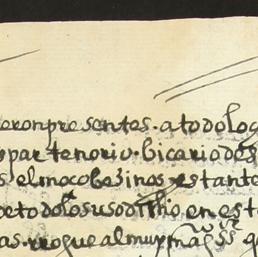 eron presentes. a todo lo q
ppar tenorio. bicario de s
s el moço bezinos estante
oeto do lo suso d̃ho, en es t
as. rogue al muy mag